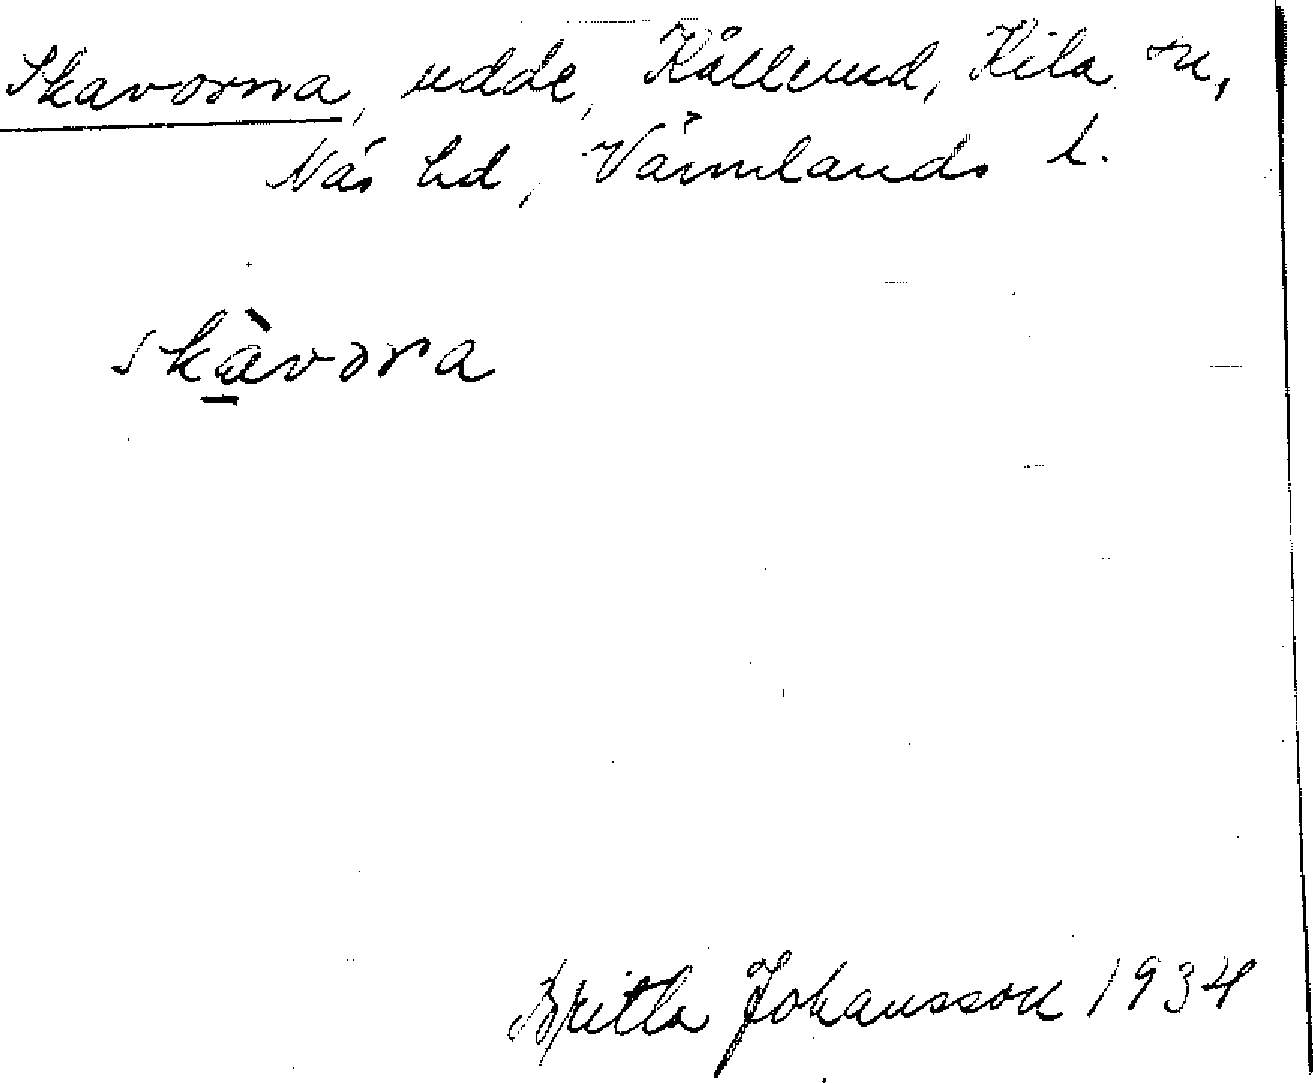 Skavorna, udde, Kållund, Kila sn,
Näs hd, Värmlands l.
skàvora
Britta Johansson 1934